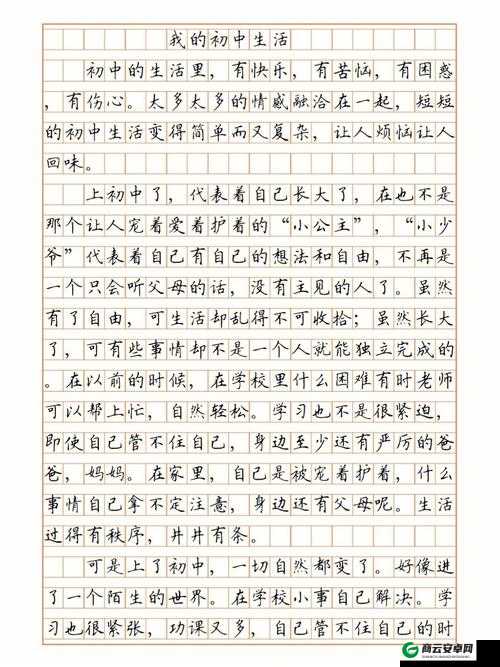 我的初中生活
初中的生活里，有快乐，有苦恼，有困惑
，有伤心。太多太多的情感融洽在一起，短短
的初中生活变得简单而又复杂，让人烦恼让人
回味。
上初中了，代表着自己长大了，在也不是
那个让人宠着爱着护着的“小公主”，“小少
爷”代表着自己有自己的想法和自由，不再是
一个只会听父母的话，没有主见的人了。虽然
有了自由，可生活却乱得不可收拾；虽然长大
了，可有些事情却不是一个人就能独立完成的
。在以前的时候，在学校里什么困难有时老师
可以帮上忙，自然轻松。学习也不是很紧迫，
即使自己管不住自己，身边至少还有严厉的爸
爸，妈妈。在家里，自己是被宠着护着，什么
事情自己拿不定注意，身边还有父母呢。生活
过得有秩序，井井有条。
可是上了初中，一切自然都变了。好像进
了一个陌生的世界。在学校小事自己解决。学
习也很紧张，功课又多，自己管不住自己的时
商云安卓网